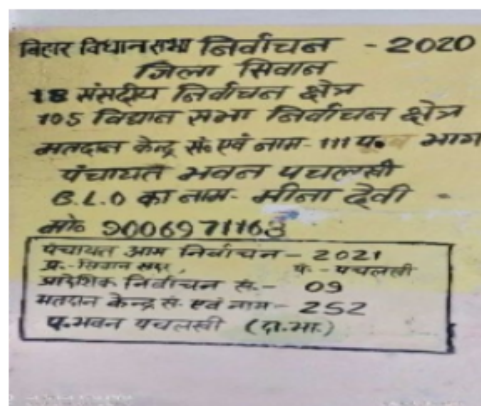 बिहार विधानसभा निर्वाचन - 2020
जिला सिवान
18 संसदीय निर्वाचन क्षेत्र
105 विधान सभा निर्वाचन क्षेत्र
मतदान केन्द्र सं. एवं नाम - 111 प. भाग
पंचायत भवन पचलखी
B.L.O का नाम - मीना देवी
मो० 9006971163
पंचायत आम निर्वाचन - 2021
प्र. - सिवान सदर, पं. - पचलखी
प्रादेशिक निर्वाचन सं. - 09
मतदान केन्द्र सं. एवं नाम - 252
प. भवन पचलखी (द.भा.)